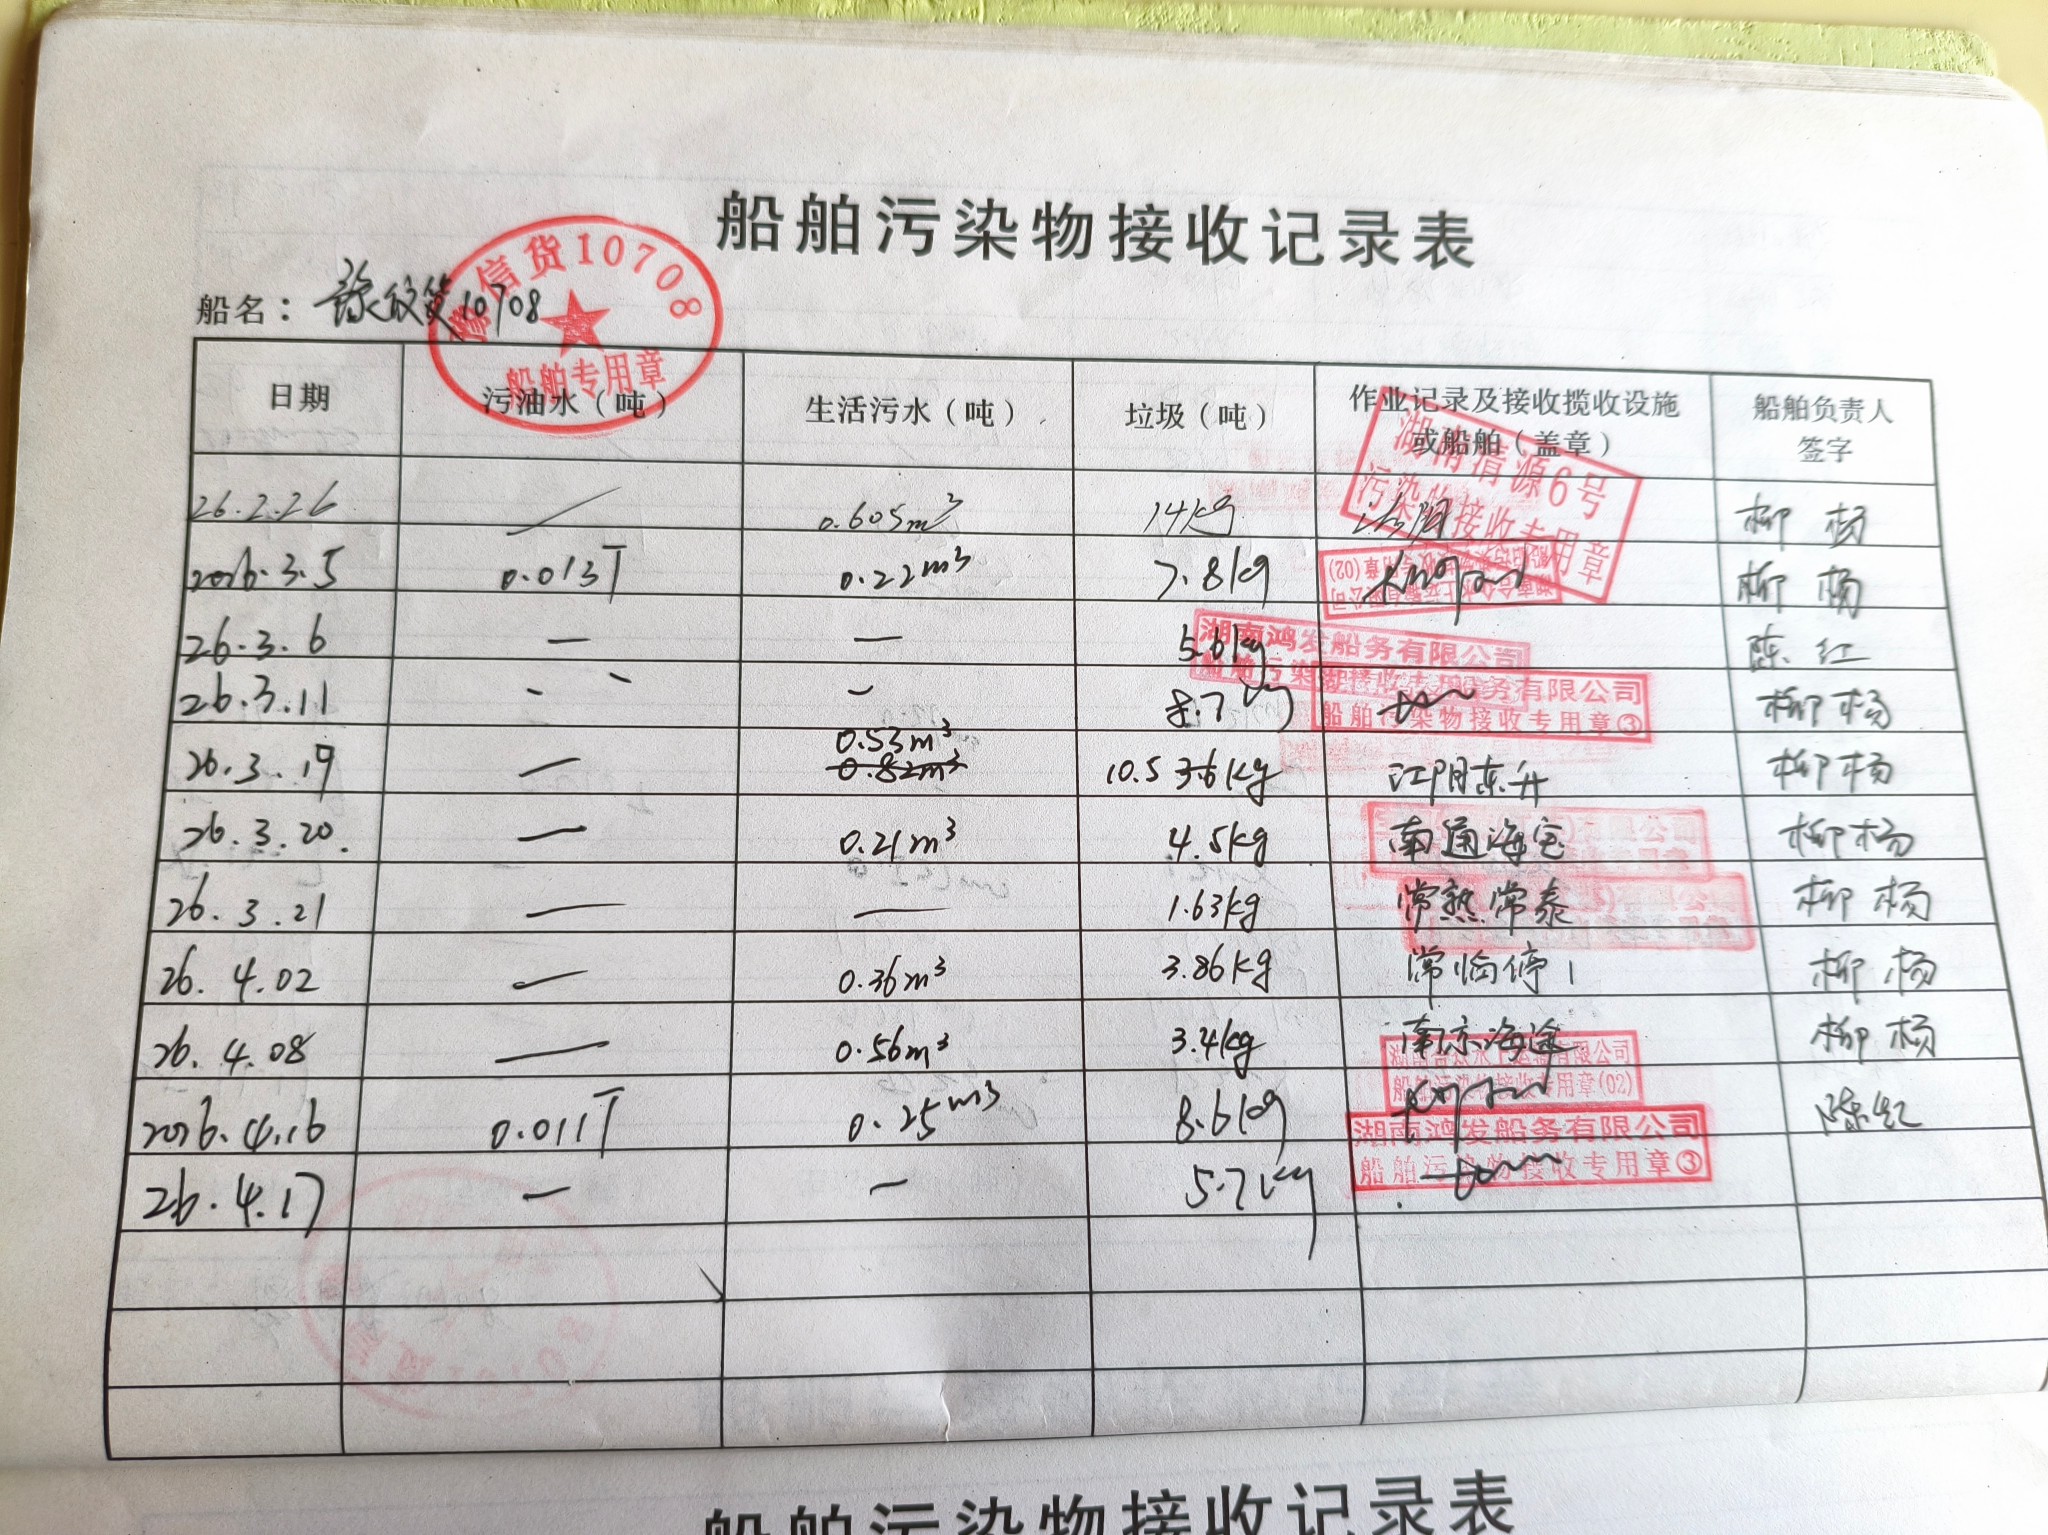 船舶污染物接收记录表
船名：豫信货10708
信货10708
船舶专用章
日期 污油水（吨） 生活污水（吨） 垃圾（吨） 作业记录及接收揽收设施或船舶（盖章） 船舶负责人签字
湖南清源6号
污染物接收专用章
26.2.26 / 0.605m³ 14kg 柳杨
2026.3.5 0.013T 0.22m³ 7.8kg 柳杨
26.3.6 — — 5.6kg 陈红
湖南鸿发船务有限公司
26.3.11 - - - 8.7kg 柳杨
船务有限公司
船舶污染物接收专用章③
26.3.19 — 0.53m³ 0.82m³ 10.5 3.6kg 江阴东升 柳杨
26.3.20. — 0.21m³ 4.5kg 南通海宝 柳杨
26.3.21 — — 1.63kg 常熟常泰 柳杨
26.4.02 — 0.36m³ 3.86kg 常临停1 柳杨
26.4.08 — 0.56m³ 3.4kg 南京海途 柳杨
有限公司
船舶污染物接收专用章(02)
2026.4.16 0.011T 0.25m³ 8.6kg 陈红
湖南鸿发船务有限公司
船舶污染物接收专用章③
26.4.17 — — 5.7kg
船舶污染物接收记录表